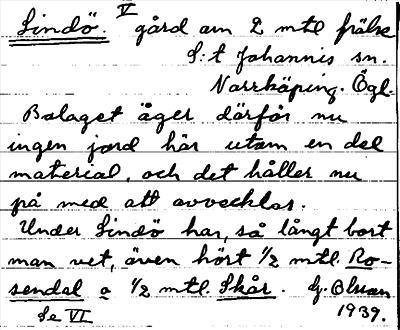 Lindö. V gård om 2 mtl frälse
S:t Johannis sn.
Norrköping. Ögl.
Bolaget äger därför nu
ingen jord här utom en del
material, och det håller nu
på med att avvecklas.
Under Lindö har, så långt bort
man vet, även hört 1/2 mtl. Ro-
sendal o 1/2 mtl. Skår. G. Olsson
Se VI. 1939.